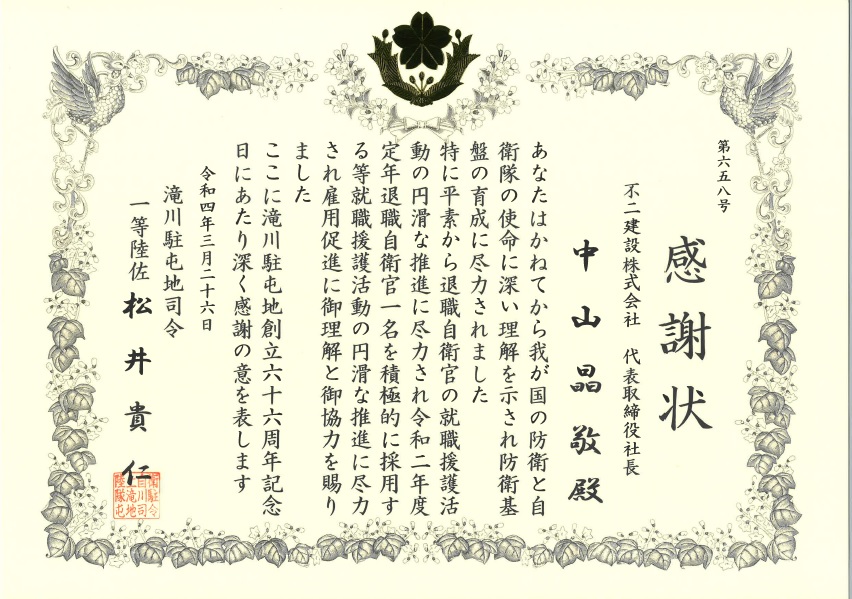 第六五八号
感謝状
不二建設株式会社 代表取締役社長
中山晶敬殿
あなたはかねてから我が国の防衛と自
衛隊の使命に深い理解を示され防衛基
盤の育成に尽力されました
特に平素から退職自衛官の就職援護活
動の円滑な推進に尽力され令和二年度
定年退職自衛官一名を積極的に採用す
る等就職援護活動の円滑な推進に尽力
され雇用促進に御理解と御協力を賜り
ました
ここに滝川駐屯地創立六十六周年記念
日にあたり深く感謝の意を表します
令和四年三月二十六日
滝川駐屯地司令
一等陸佐 松井貴仁